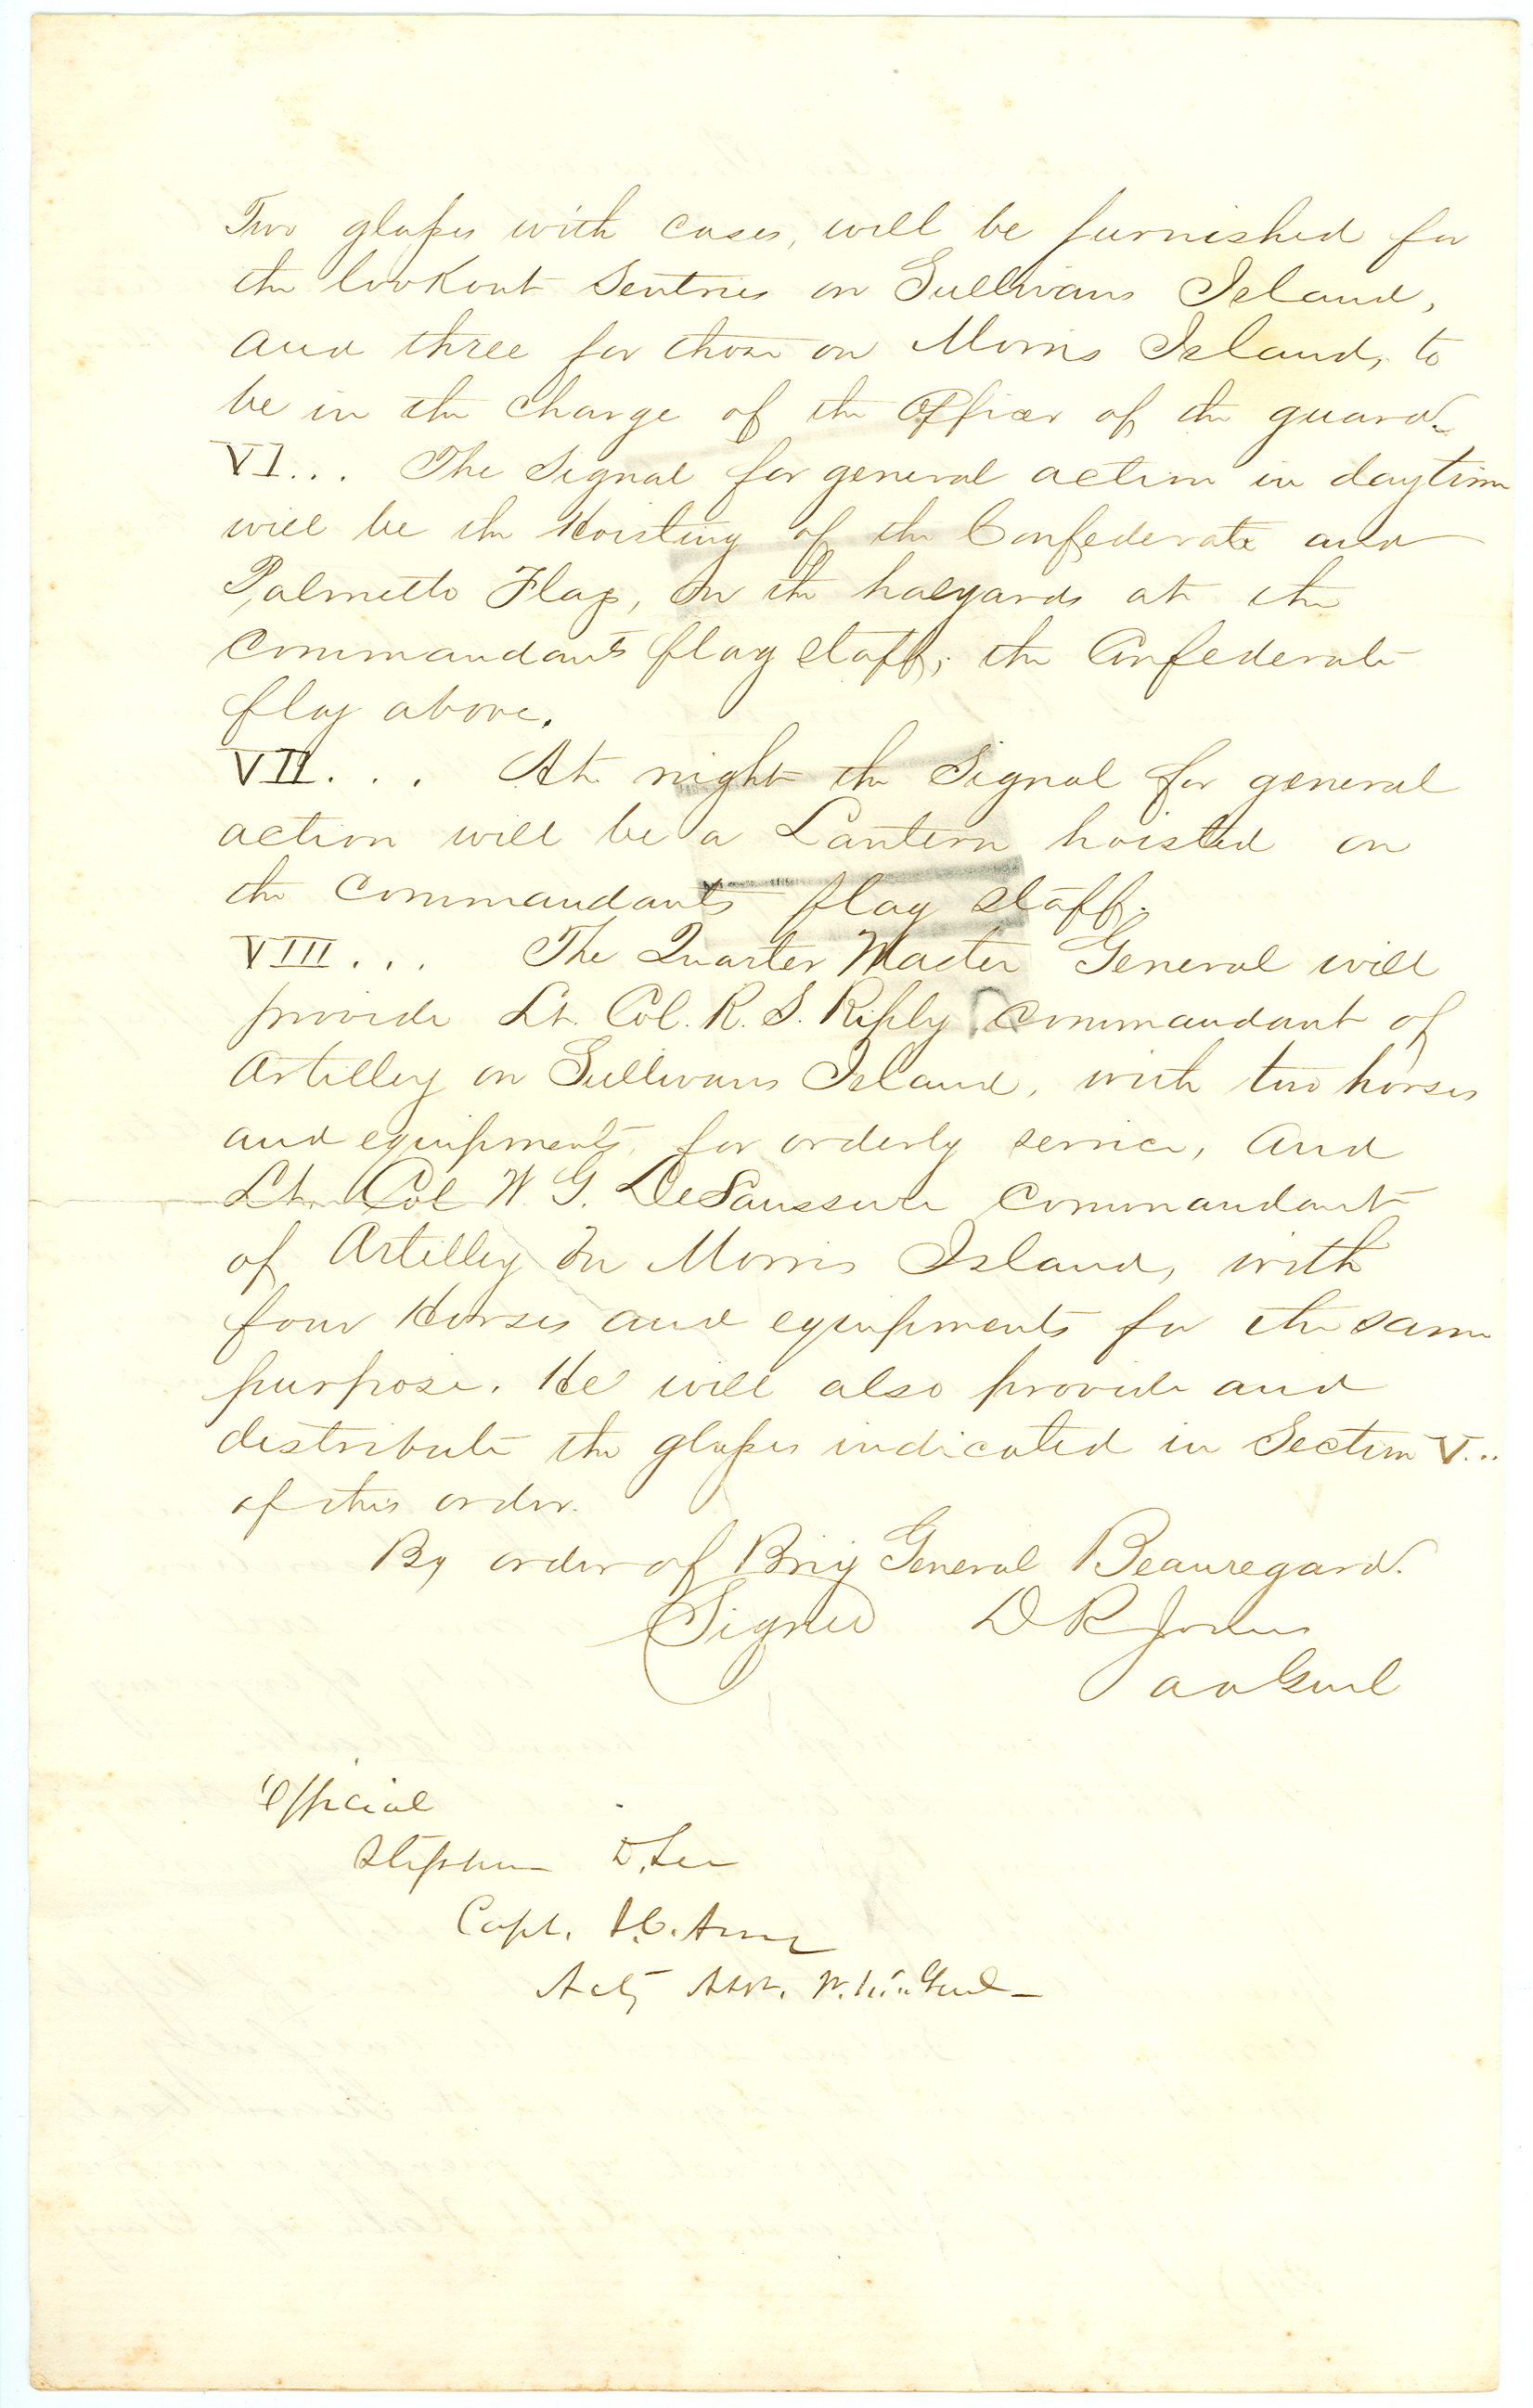 Two glasses with cases, will be furnished for
the lookout Sentries on Sullivans Island,
and three for those on Morris Island, to
be in the charge of the Officer of the guard.
VI... The Signal for general action in daytime
will be the Hoisting of the Confederate and
Palmetto Flags, on the halyards at the
Commandants flag staff; the Confederate
flag above.
VII... At night the Signal for general
action will be a Lantern hoisted on
the Commandants flag staff.
VIII... The Quarter Master General will
provide Lt. Col. R. S. Riply Commandant of
Artillery on Sullivans Island, with two horses
and equipments, for orderly service, and
Lt. Col W. G. DeSaussure Commandant
of Artillery on Morris Island, with
four Horses and equipments for the same
purpose. He will also provide and
distribute the glasses indicated in Section V...
of this order.
By order of Brig General Beauregard.
Signed D R Jones
a a Genl
Official
Stephen D. Lee
Capt. S.C. Army
Actg Asst.